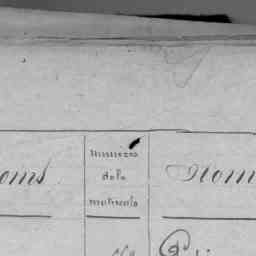 oms
numéros
de la
matricule
Nom